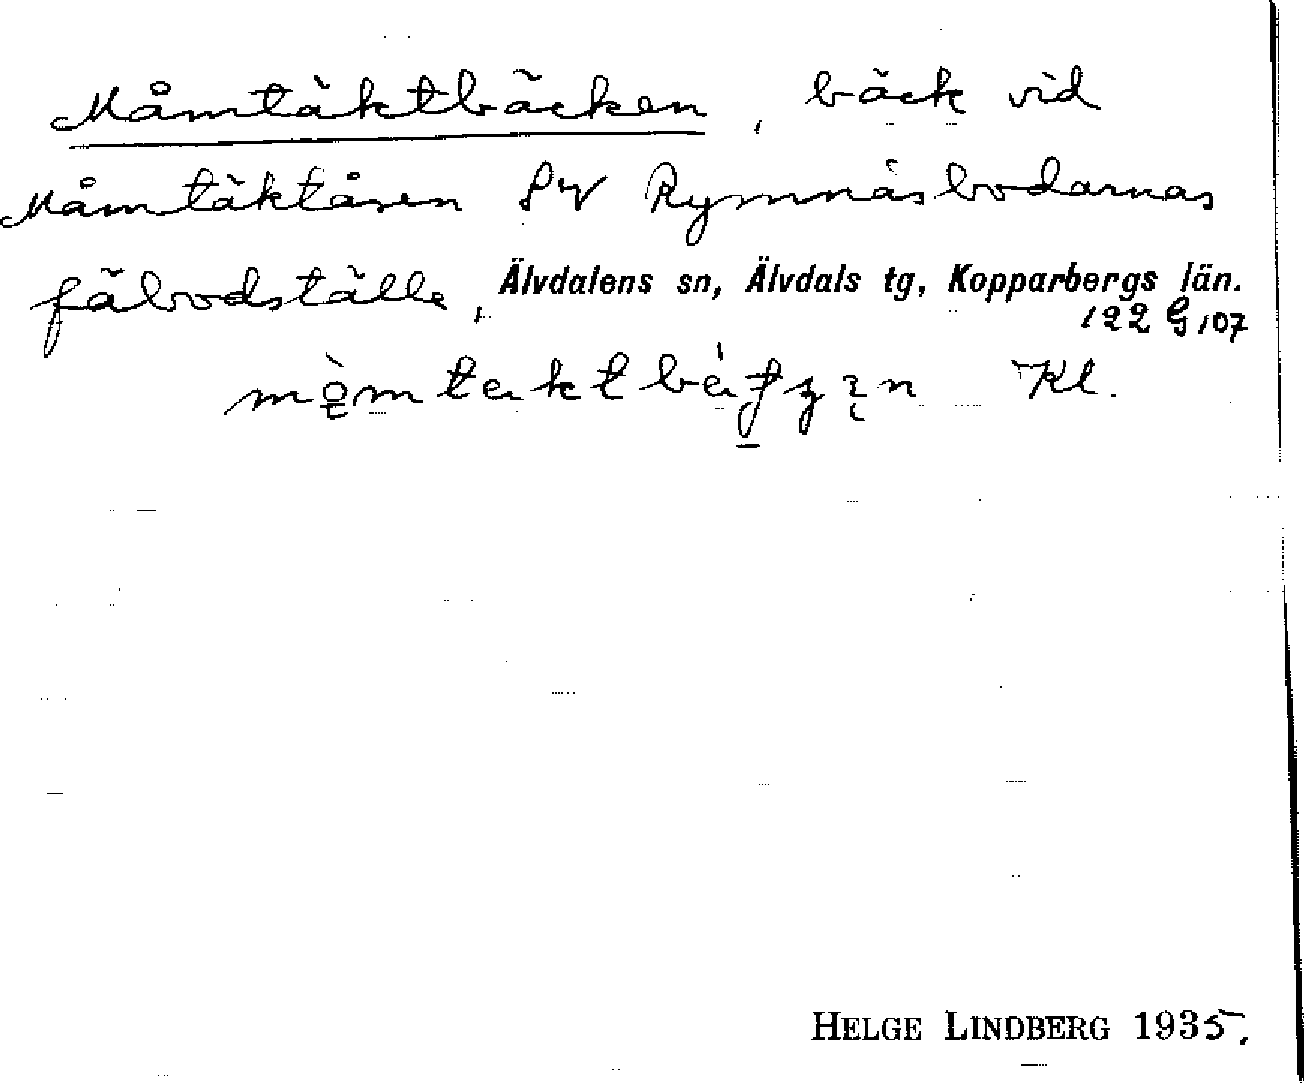 Måmtäktbäcken, bäck vid
Måmtäktåsen SV Rymnäsbodarnas
fäbodställe, Älvdalens sn, Älvdals tg, Kopparbergs län.
122 G 107
Kl.
HELGE LINDBERG 1935.